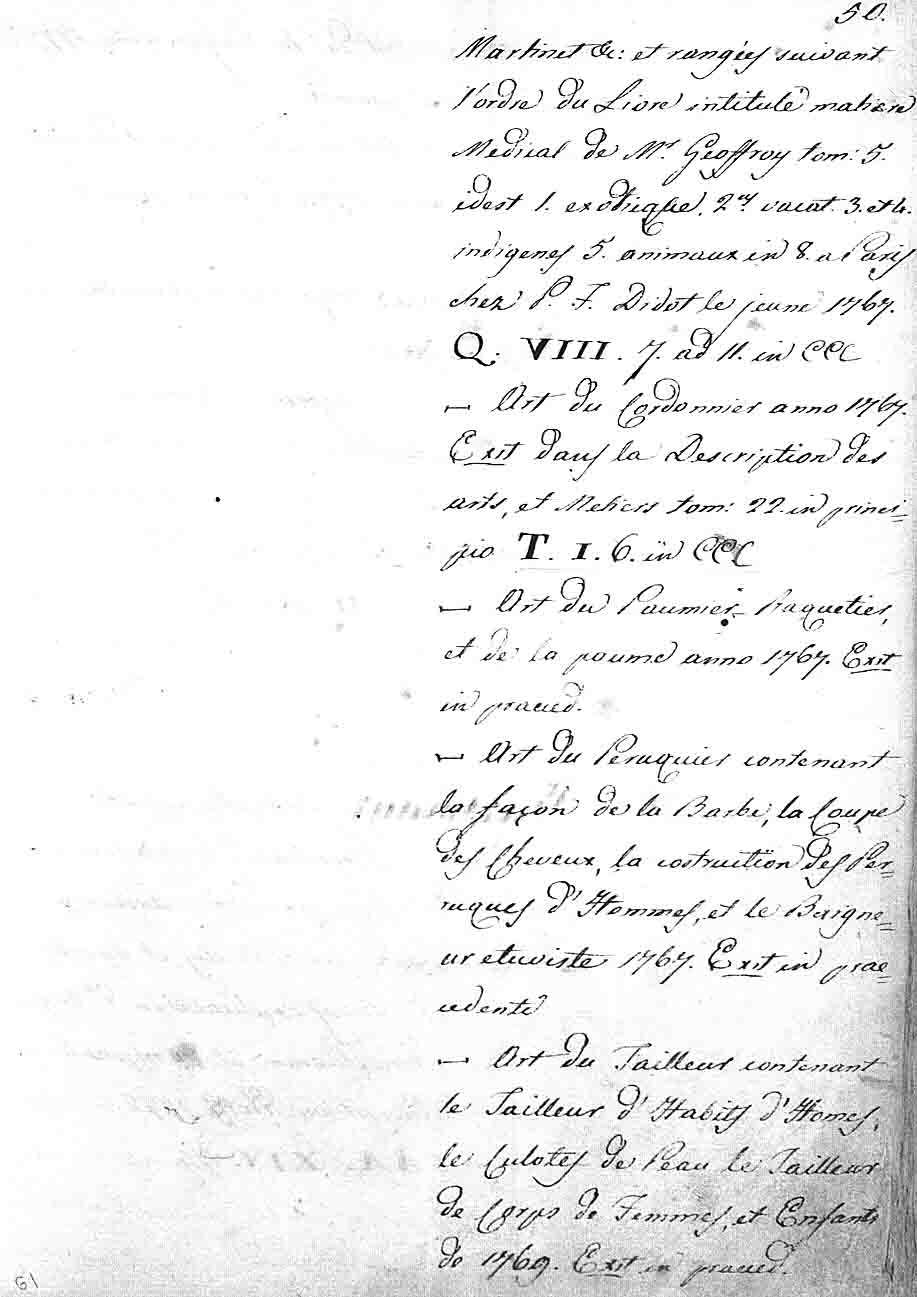 50.
Martinet &c: et rangées suivant
l'ordre du Livre intitulé matiere
Medical de Mr. Geoffroy tom: 5.
idest 1. exoticque, 2. vacat. 3. et 4.
indigenes 5. animaux in 8. a Paris
chez P. F. Didot le jeune 1767.
Q. VIII. 7. ad 11. in CCC
— Art du Cordonnier anno 1767.
Exit dans la Description des
arts, et Metiers tom: 22. in princi=
pio T. I. 6. in CCC
— Art du Paumier=Raquetier,
et de la poume anno 1767. Exit
in praeced.
— Art du Peruquier contenant
la façon de la Barbe, la Coupe
des Cheveux, la costruction des Per=
ruques d'Hommes, et le Baigne=
ur etuviste 1767. Exit in prae=
cedente
— Art du Tailleur contenant
le Tailleur d'Habits d'Homes,
le Culotes de Peau le Tailleur
de Corps de Femmes, et Enfants
de 1769. Exit in praeced.
61